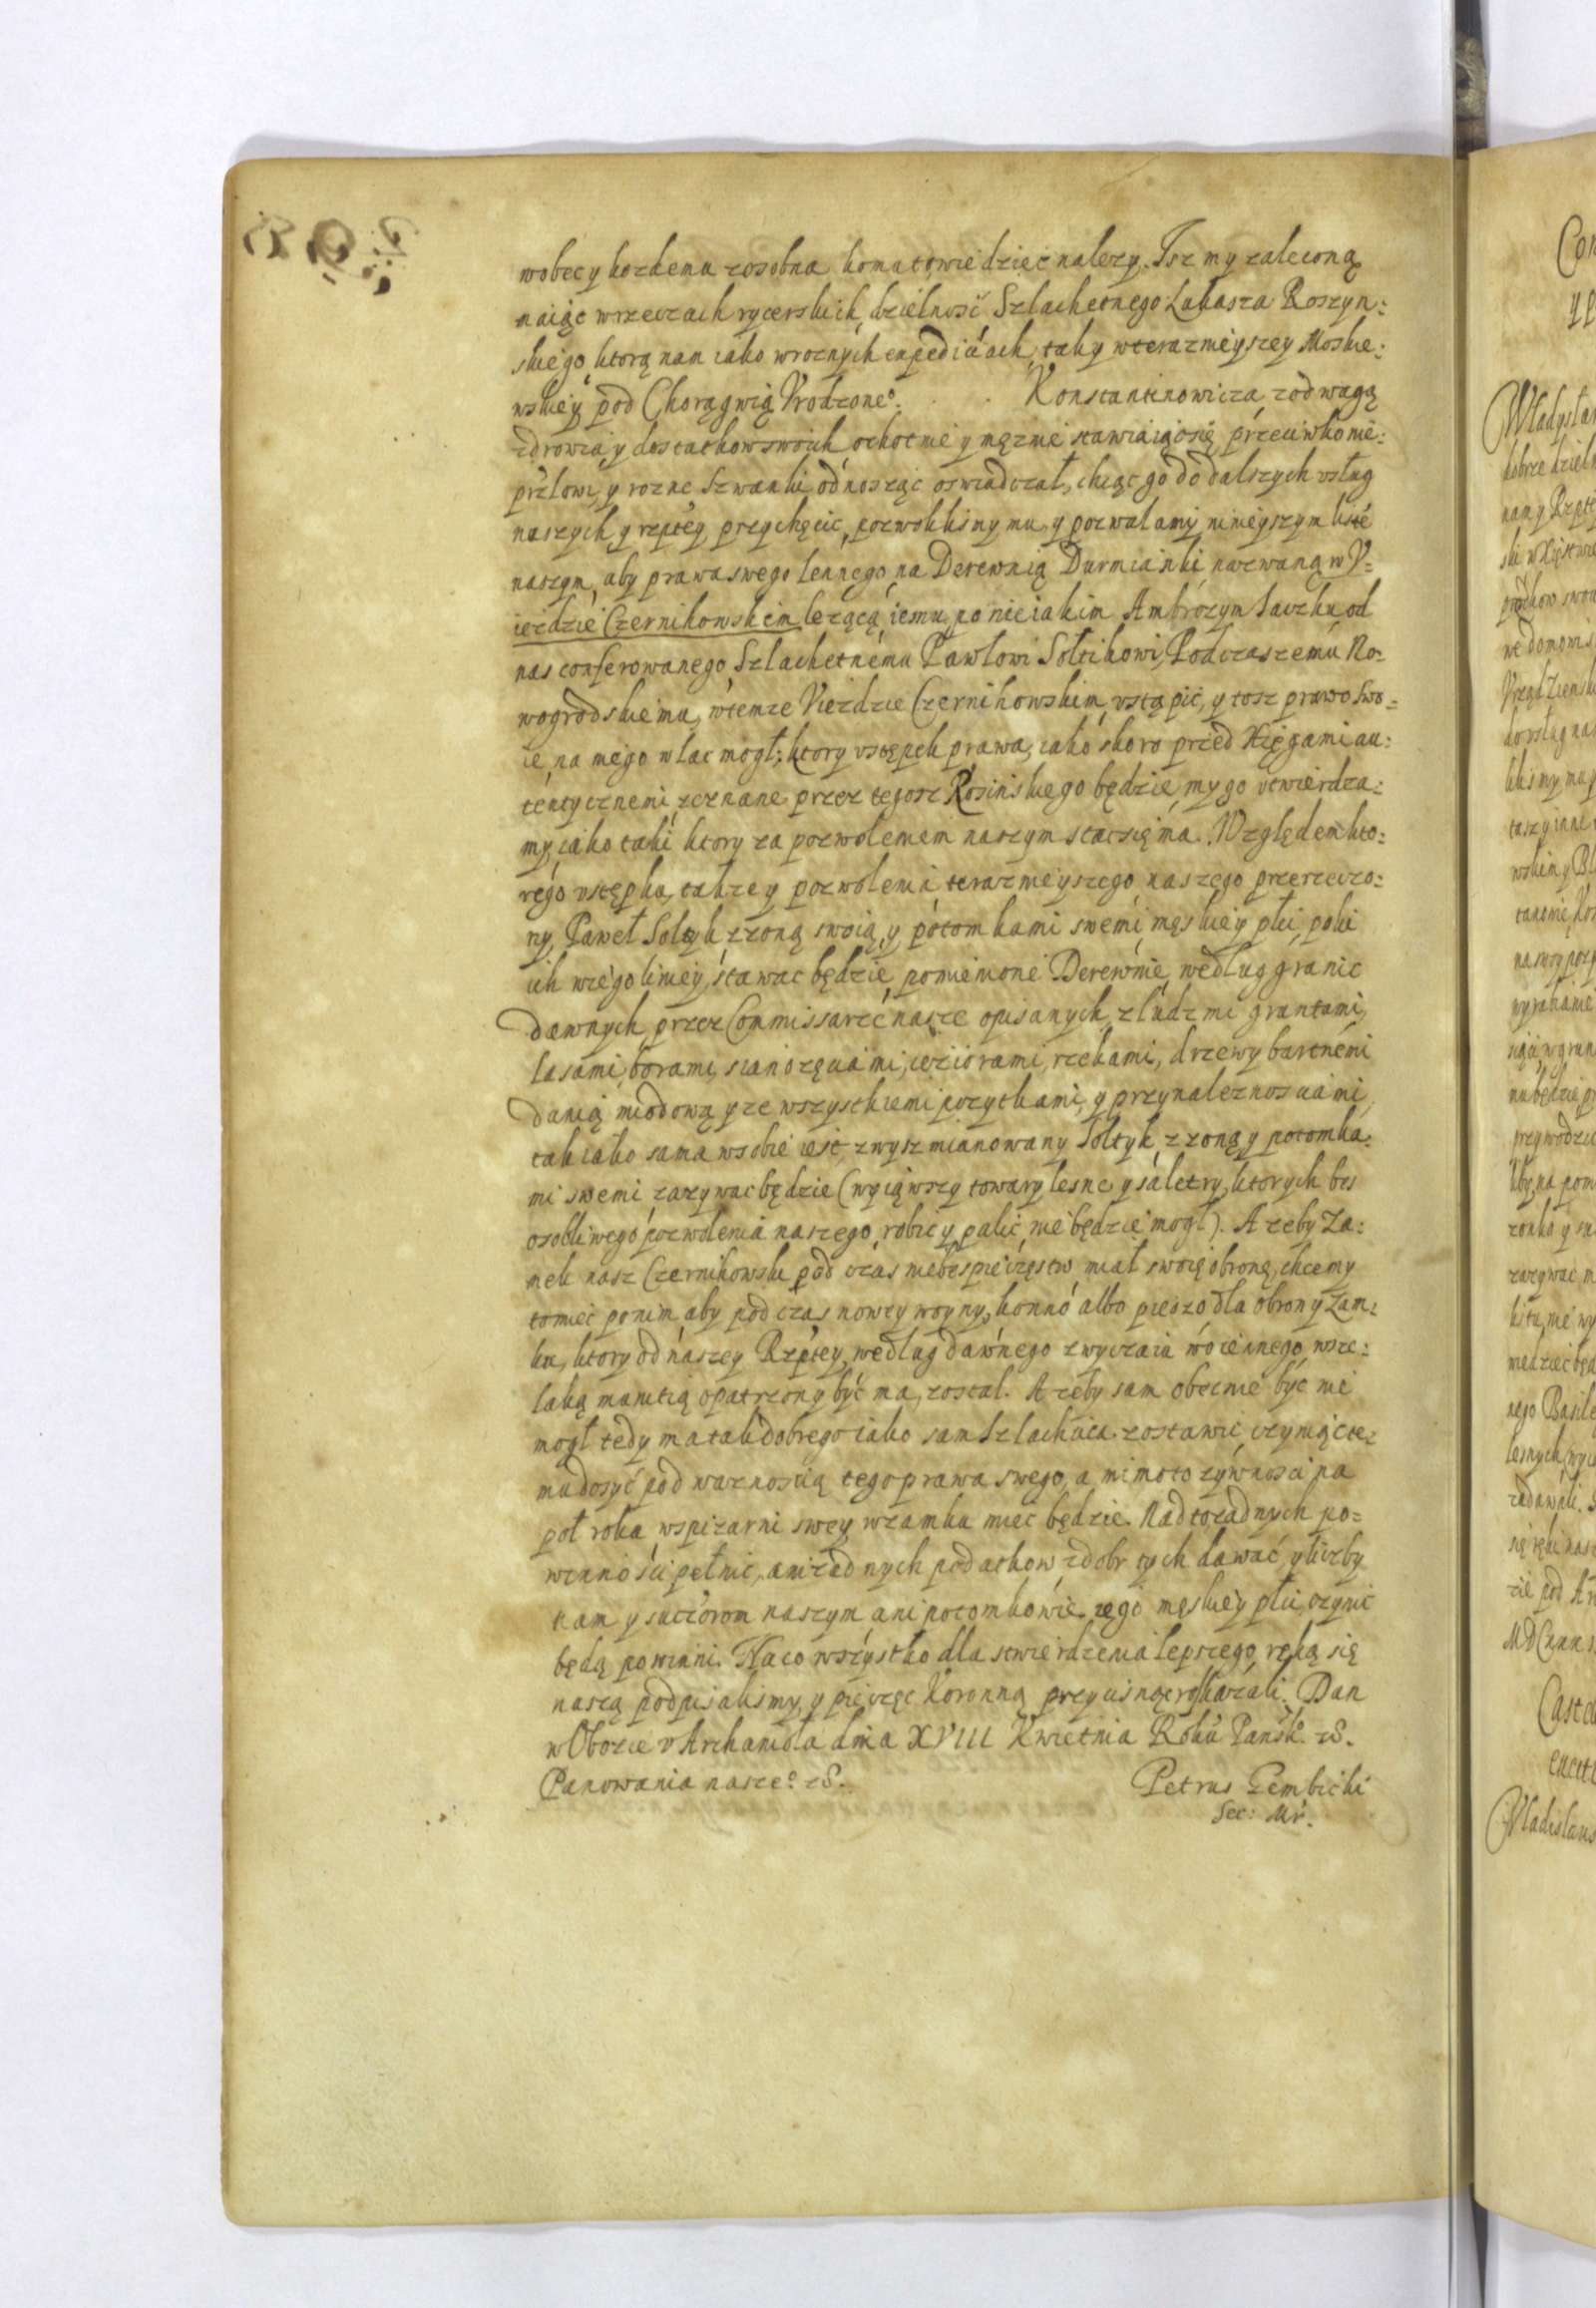 wobec y kozdemu zosobna komu to wiedziec nalezy. Isz my zaleconą
maiąc wrzeczach rycerskich, dzielnosć Szlachetnego Łukasza Roszyn:
skiego, ktorą nam iako wroznych expediciach, tak y wterazmieyszey Moskie:
wskiey pod Chorągwią Vrodzone°. . . Konstantinowicza, zodwagą
zdrowia y dostatkow swoich ochotnie y męznie stawiaiąc się przeciwko nie:
przlowi, y rozne szwanki odnosząc oswiadczał, chcąc go do dalszych vsług
naszych y rzptey przychęcic, pozwolilismy mu, y pozwalamy ninieyszym liste
naszym, aby prawa swego lennego, na Derewnią Durnianki nazwaną w V=
iezdzie Czernikowskim lezącą, iemu po nieiakim Ambrozym Saczku od
nas conferowanego Szlachetnemu Pawłowi Sołtikowi, Podczaszemu No:
wogrodskiemu, wtemze Vieździe Czernihowskim, vstąpić, y tosz prawo Swo=
ie, na niego wlac mogł; ktory vstępek prawa, iako skoro przed Xięgami au:
tentycznemi, zeznane przez tegosz Rosinskiego będzie, my go vtwierdza:
my, iako taki ktory za pozwoleniem naszym stac się ma. Względem kto:
rego vstępku, takze y pozwolenia terazmieyszego naszego, przerzeczo:
ny, Paweł Sołtyk, z zoną swoią, y potomkami swemi, męskiey płci, poki
ich wiego liniey, stawac będzie, pomienione Derewnie, według granic
dawnych, przez Commissarze nasze opisanych, z ludzmi gruntami,
lasami, borami, sianozęciami, ieziorami, rzekami, drzewy bartnemi
danią miodową y ze wszystkiemi pozytkami, y przynaleznosciami,
tak iako sama wsobie iest, zwysz mianowany Sołtyk, z zoną y potomka:
mi swemi zazywac będzie (wyiąwszy towary lesne y saletry, ktorych bes
osobliwego pozwolenia naszego, robic y palic, nie będzie mogł). A zeby Za:
mek nasz Czernihowski pod czas niebespieczęstw, miał swoię obronę, chcemy
to miec po nim, aby pod czas nowey woyny, konno albo pieszo, dla obrony Zam:
ku, ktory od naszey Rzptey, według dawnego zwyczaiu woiennego, wsze:
laką municią opatrzony być ma, został. A zeby sam obecnie być nie
mogł tedy ma tak dobrego iako sam Szlachcica zostawić, czyniąc te:
mu dosyć pod waznoscią tego prawa swego, a mimo to zywnosci na
poł roka, wspizarni swey wzamku miec będzie. Nad to zadnych po=
winnosci pełnic, ani zadnych podatkow zdobr tych dawać, y liczby
nam y succorom naszym, ani potomkowie iego męskiey płci, czynić
będą powinni. Na co wszystko dla stwierdzenia lepszego, ręką się
naszą podpisalismy, y pieczęc Koronną przycisnąć roskazali. Dan
w Obozie v Archanioła dnia XVIII Kwietnia Roku Pańsk°. ZS.
Panowania nasze°. ZS.
Petrus Gembicki
Sec: Mr.